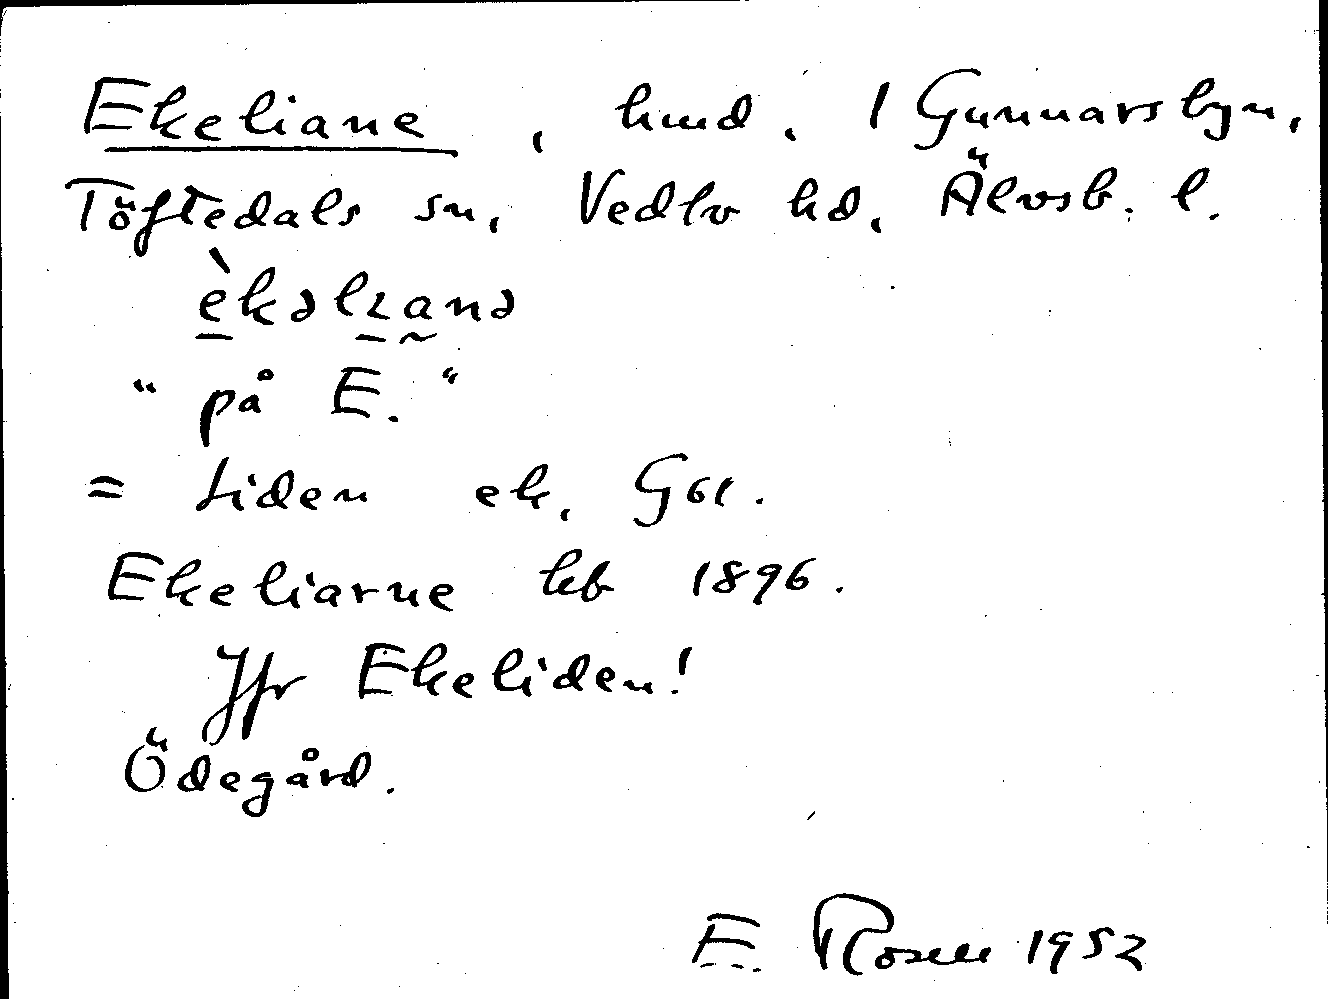 Ekeliane, hmd. 1 Gunnarsbyn,
Töftedals sn, Vedbo hd, Älvsb. l.
èkəlɩanə
"på E."
= Liden ek. G61.
Ekeliarne kb 1896.
Jfr Ekeliden!
Ödegård.
E. Rosell 1952